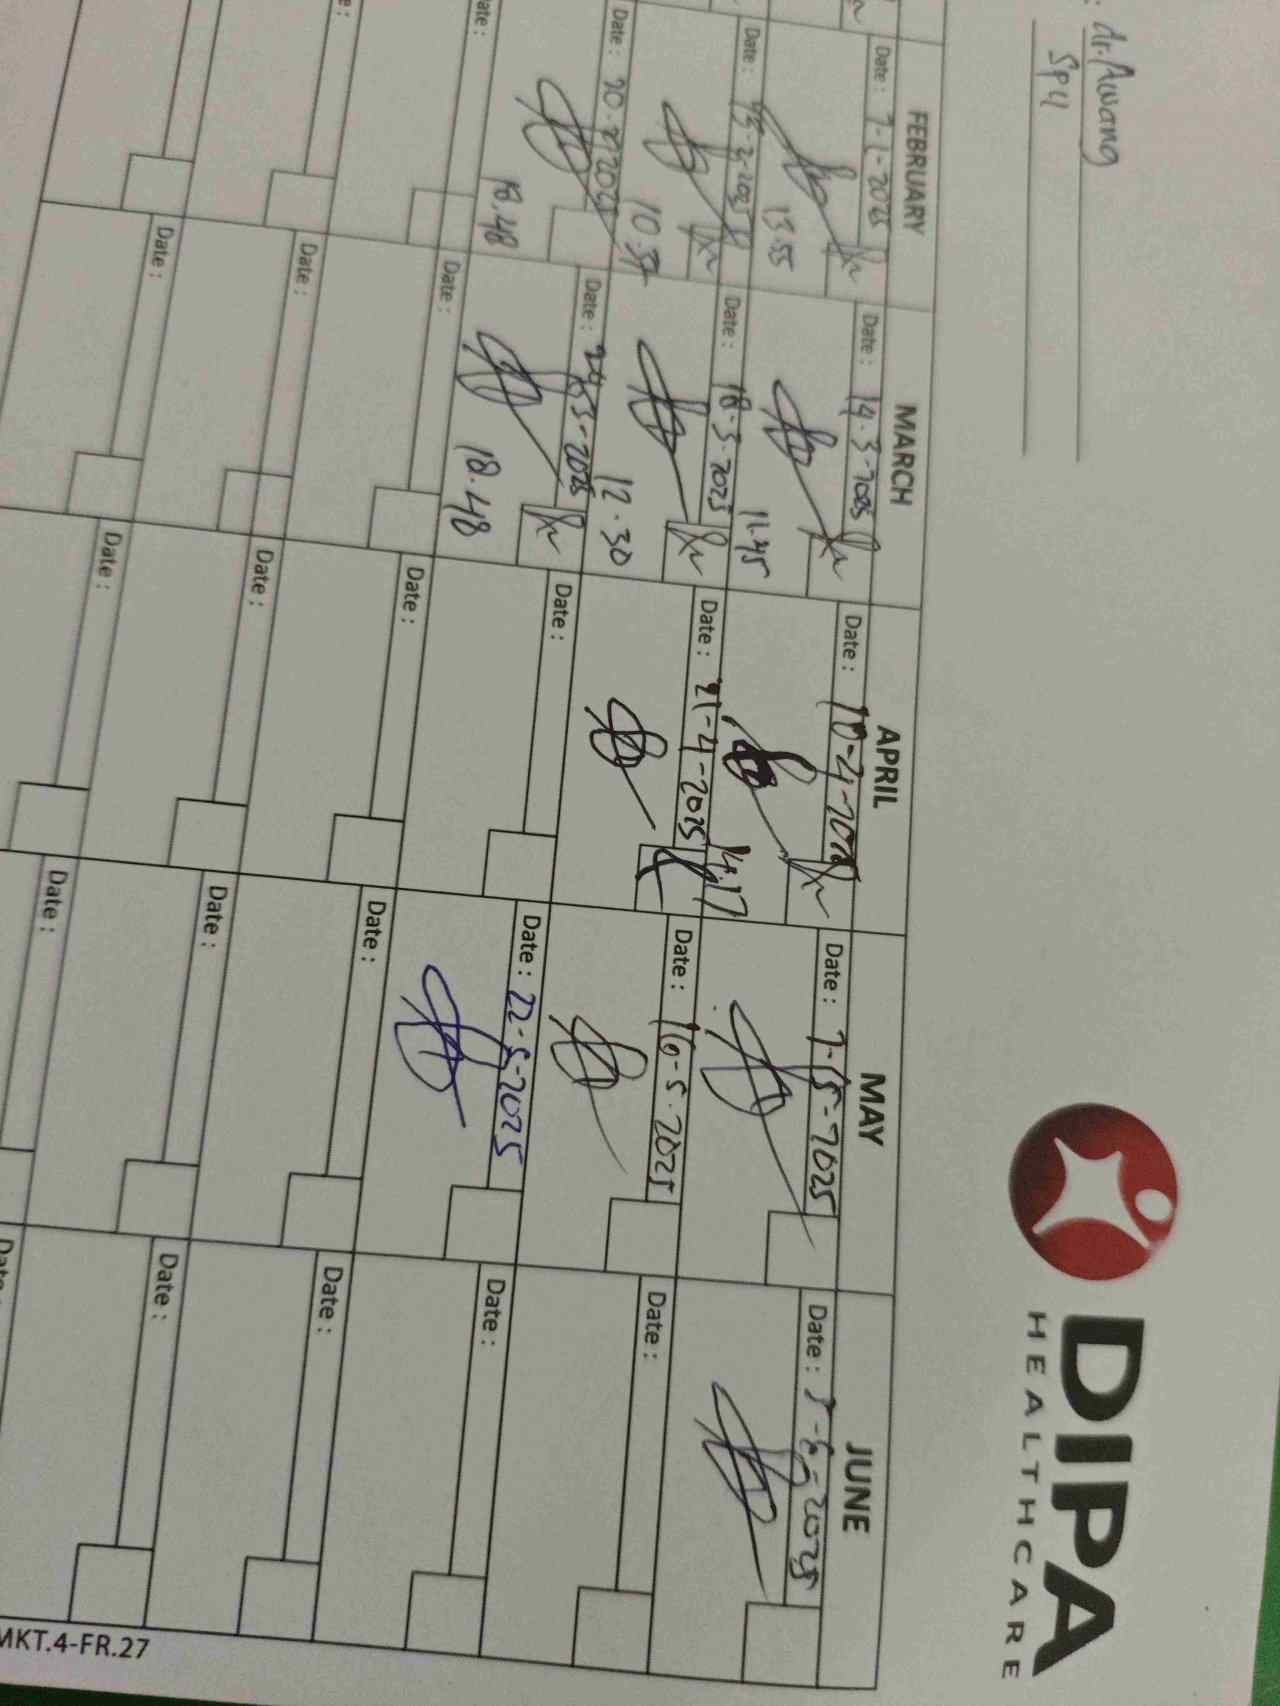 : dr. Awang
Sp U
DIPA
HEALTHCARE
FEBRUARY MARCH APRIL MAY JUNE
Date : 7-2-2025 Date : 14-3-2025 Date : 10-4-2025 Date : 7-5-2025 Date : 5-6-2025
13.55 11.45 14.17
Date : 13-2-2025 Date : 18-3-2025 Date : 21-4-2025 Date : 16-5-2025 Date :
10.37 12.30
Date : 20-2-2025 Date : 24-3-2025 Date : Date : 22-5-2025 Date :
18.48 18.48
Date : Date : Date : Date : Date :
Date : Date : Date : Date :
Date : Date : Date :
MKT.4-FR.27